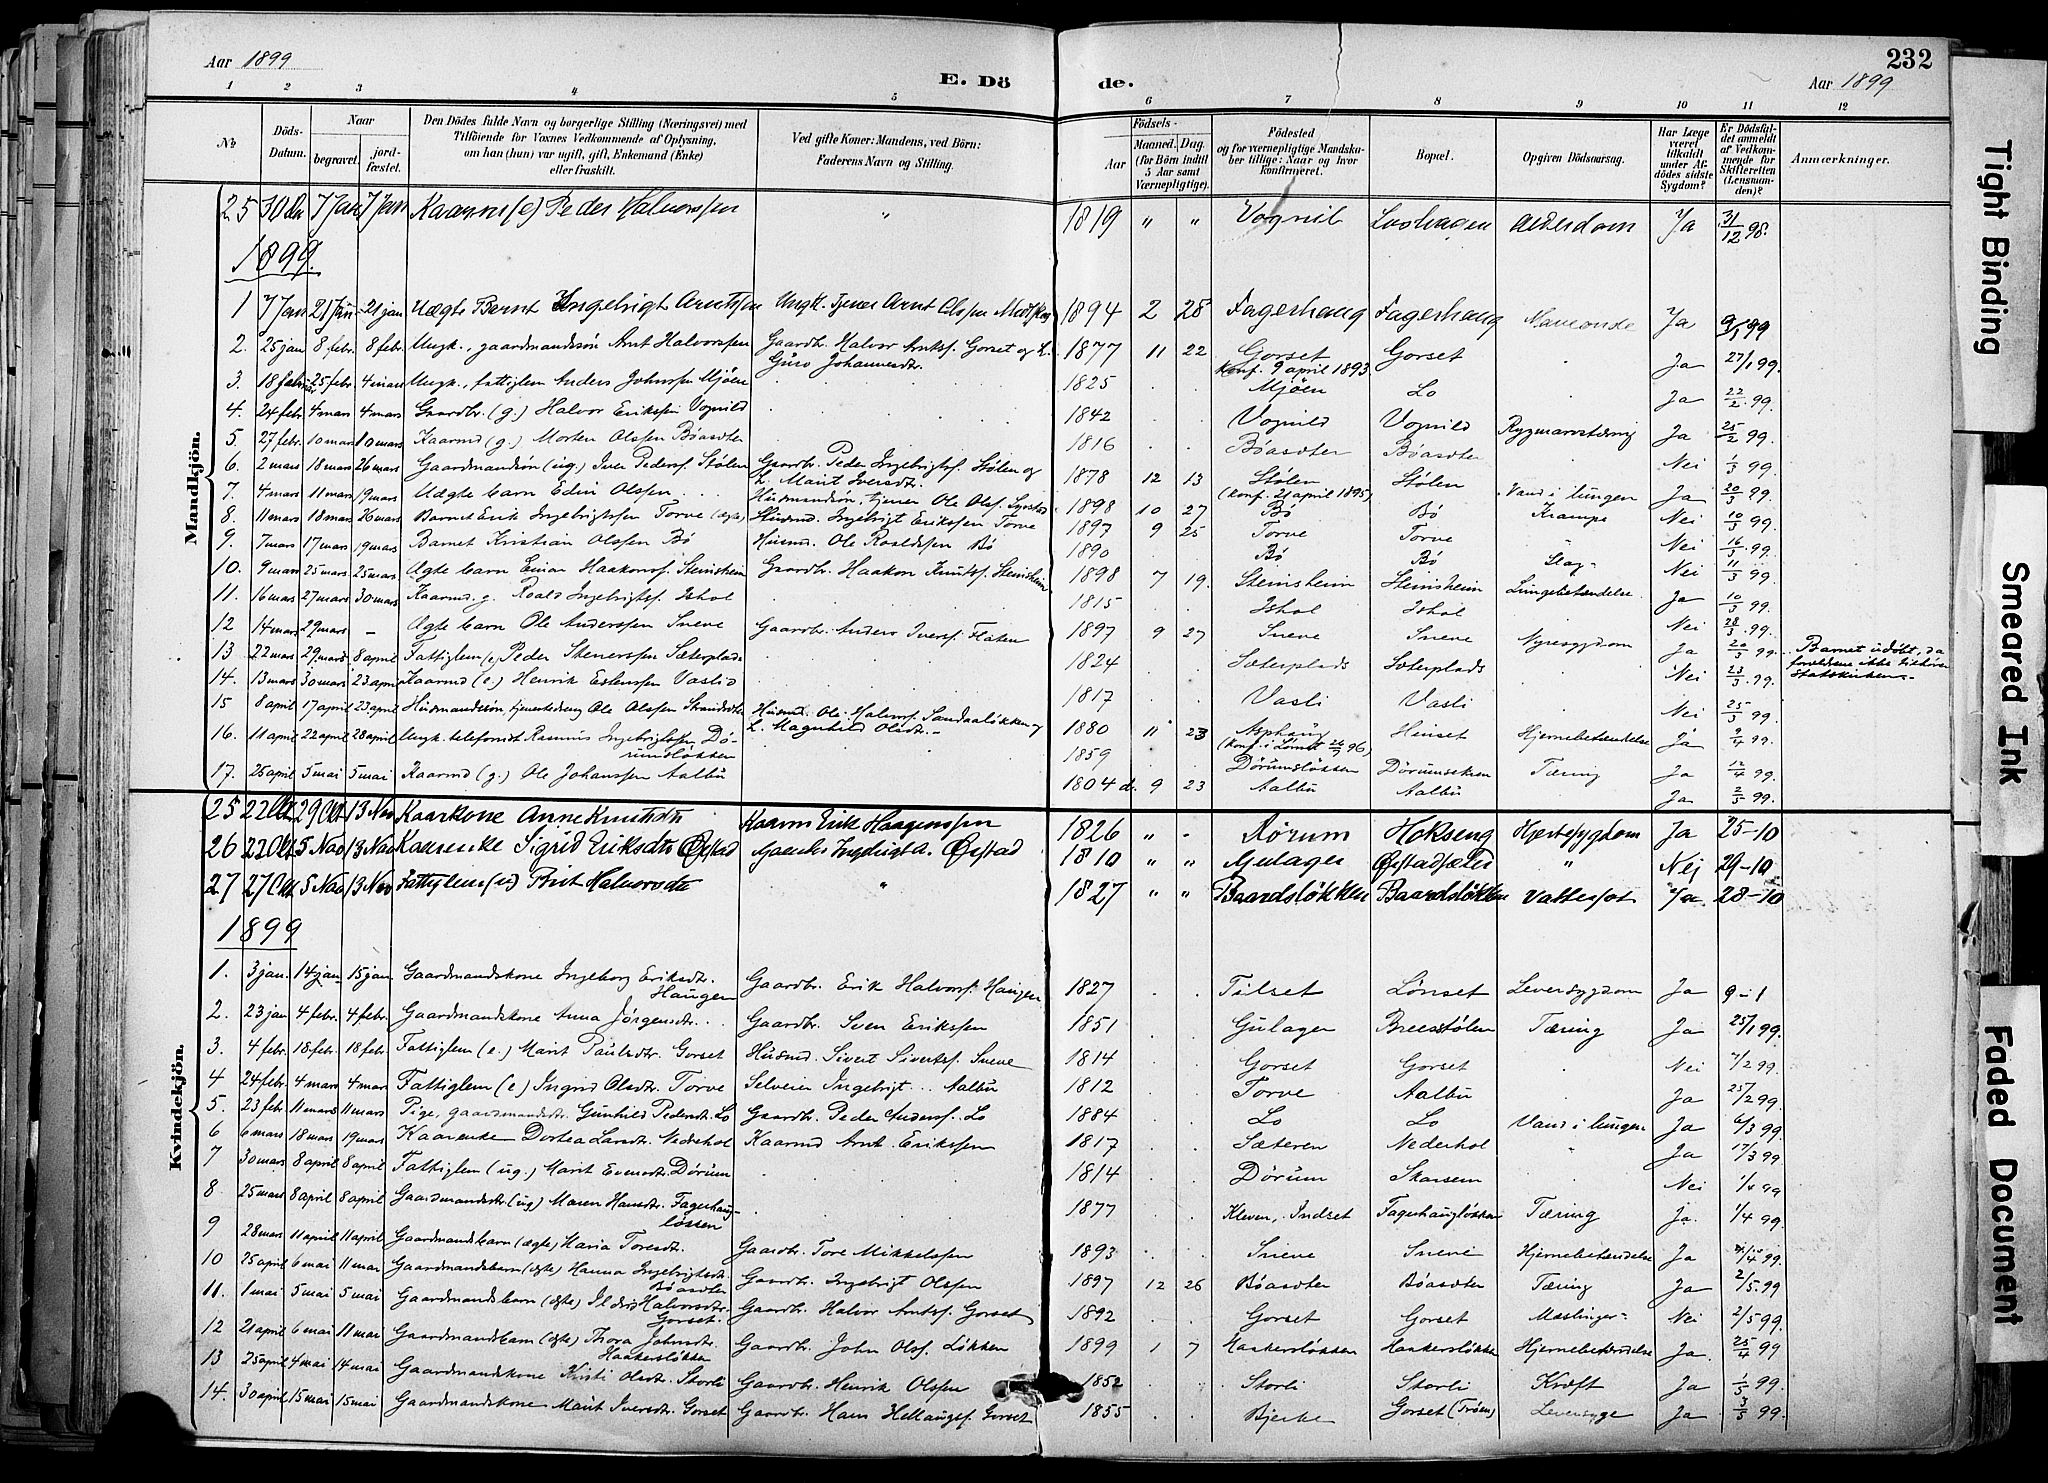 Aar 1899
E. Døde.
232
Aar 1899
1 2 3 4 5 6 7 8 9 10 11 12
No
Døds-Datum.
Naar begravet. jordfæstet.
Den Dødes fulde Navn og borgerlige Stilling (Næringsvei) med Tilføiende for Voxnes Vedkommende af Oplysning, om han (hun) var ugift, gift, Enkemand (Enke) eller fraskilt.
Ved gifte Koner: Mandens, ved Børn: Faderens Navn og Stilling.
Fødsels-
Aar
Maaned. Dag. (for Børn indtil 5 Aar samt Værnepligtige).
Fødested og for værnepligtige Mandskaber tillige: Naar og hvor konfirmeret.
Bopæl.
Opgiven Dødsaarsag.
Har Læge været tilkaldt under Afdødes sidste Sygdom?
Er Dødsfaldet anmeldt af Vedkommende for Skifteretten (Lensmanden)?
Anmærkninger.
Mandkjøn.
25 7 Jan 7 Jan Kaarm (e) Peder Halvorssen " 1819 " " Vognil Loshagen Alderdom Ja 31/12 98.
1899.
1 7 Jan 21 Jan 21 jan Uægte Bernt Ingebrigt Arntssen Ungk. tjener Arnt Olssen 1894 2 28 Fagerhaug Fagerhaug Ja 9/1 99
2. 25 jan 8 febr. 8 febr. Ungk., gaardmandssøn Arnt Halvorssen Gaardbr. Halvor Arntsf. Gorset og h. Guro Johannesdtr. 1877 11 22 Gorset Gorset Ja 27/1 99.
Konf. 9 april 1893
3. 18 febr. 25 febr. 4 mars Ungk., fattiglem Anders Johnssen Mjøen 1825 Mjøen Lo Ja 22/2 99.
4. 24 febr. 4 mars 4 mars Gaardbr. (g.) Halvor Erikssen Vognild 1842 Vognild Vognild Rygmarvstæring Ja 25/2 99.
5. 27 febr. 10 mars 10 mars Kaarmd (g.) Morten Olssen Bøasdter 1816 Bøasdter Bøasdter Nei 1/3 99.
6. 2 mars 18 mars 26 mars Gaardmandssøn (ug.) Iver Pedersf. Stølen Gaardbr. Peder Ingebrigtsf. Stølen og h. Marit Iversdtr. 1878 12 13 Stølen Stølen Vand i lungen Ja 20/3 99.
(Konf. 21 april 1895)
7. 4 mars 11 mars 19 mars Uægte barn Edin Olssen Husmandssøn, tjener Ole Olsf. 1898 10 27 Bø Bø Krampe Nei 10/3 99.
8. 11 mars 18 mars 26 mars Barnet Erik Ingebrigtssen Torve (ægte) Husmd. Ingebrigt Erikssen Torve 1897 9 25 Torve Torve Nei 16/3 99.
9. 7 mars 17 mars 19 mars Barnet Kristian Olssen Bø Husmd. Ole Roaldssen Bø 1890 Bø Bø Slag Nei 11/3 99.
10. 9 mars 25 mars 25 mars Ægte barn Einar Haakonsf. Stensheim Gaardbr. Haakon Knutsf. Stensheim 1898 7 19. Stensheim Stensheim Lungebetændelse Ja 10/3 99.
11. 16 mars 27 mars 30 mars Kaarmd. g. Roald Ingebrigtsf. Ishol 1815 Ishol Ishol Nei 28/3 99.
12 14 mars 29 mars – Ægte barn Ole Anderssen Sneve Gaardbr. Anders Iversf. Flaten 1897 9 27 Sneve Sneve Nyresygdom Ja 20/3 99. Barnet udøbt, da forældrene ikke tilhøre Statskirken.
13 22 mars 29 mars 8 april Fattiglem (e) Peder Stenerssen Sæterplads 1824 Sæterplads Sæterplads Nei 23/3 99.
14. 13 mars 30 mars 23 april Kaarmd (e.) Henrik Estenssen Vaslid 1817 Vasli Vasli Nei 25/3 99.
15 8 april 17 april 23 april Husmandssøn, tjenestedreng Ole Olssen Husmd. Ole Halvorsf. Sandaaløkken og h. Magnhild Olsdtr. 1880 11 23 Asphaug Henset Hjernebetændelse Ja 9/4 99.
(Konf. i Lønset 96)
16. 11 april 22 april 28 april Ungk. telefonist Rasmus Ingebrigtssen Dørumsløkken 1859 Dørumsløkken Tæring Ja 12/4 99.
17. 25 april 5 mai 5 mai Kaarmd (g.) Ole Johanssen Aalbu 1804 9 23 Aalbu Aalbu Ja 2/5 99.
Kvindekjøn.
25 22 Okt 29 Okt 13 Nov Kaarkone Anne Knutsdtr Kaarm Erik Haagenssen 1826 " Rørum Hokseng Hjertesygdom Ja 25-10
26 22 Okt 5 Nov 13 Nov Kaarenke Sigrid Eriksdtr Ørstad Ingebrigt A. Ørstad 1810 " " Gulager Ørstadsæter " Nej 29-10
27 27 Okt 5 Nov 13 Nov Fattiglem (u) Brit Halvorsdtr " 1827 " " Baardsløkken Baardsløkken Vattersot Ja 28-10
1899
1. 3 jan. 14 jan 15 jan Gaardmandskone Ingeborg Eriksdtr. Haugen Gaardbr. Erik Halvorsf. Haugen 1827 Tilset Lønset Leversygdom Ja 9-1
2. 23 jan 4 febr. 4 febr. Gaardmandskone Anna Jørgensdtr. Gaardbr. Sven Erikssen 1851 Gulager Breestølen Tæring Ja 25/1 99.
3. 4 febr. 18 febr. 18 febr Fattiglem (e.) Marit Paulsdtr. Gorset Husmd. Sivert Sivertsf. Sneve 1814 Gorset Gorset Nei 7/2 99.
4 24 febr. 4 mars 4 mars Fattiglem (e) Ingrid Olsdtr. Torve Selveier Ingebrigt Aalbu 1812 Torve Aalbu Ja 25/2 99.
5. 23 febr 11 mars 11 mars Pige, gaardmandsdtr. Gunhild Pedersdtr. Lo Gaardbr. Peder Andersf. Lo 1884 Lo Lo Vand i lungen Ja 6/3 99.
6 6 mars 18 mars 19 mars Kaarenke Dortea Larsdtr. Nederhol Kaarmd Arnt Erikssen 1817 Sæteren Nederhol Ja 17/3 99
7 30 mars 8 april 8 april Fattiglem (ug.) Marit Evensdtr. Dørum 1814 Dørum Skarsem Nei 1/4 99
8 25 mars 8 april 8 april Gaardmandsdtr. (ug) Maren Hansdtr. Fagerhaugløkken 1877 Kleven, Indset Fagerhaugløkken Tæring Ja. 1/4 99
9 28 mars 11 april 11 april Gaardmandsbarn (ægte) Maria Toresdtr. Gaardbr. Tore Mikkelssen 1893 Sneve Sneve Hjernebetændelse Ja
10 25 april 6 mai 11 mai Gaardmandsbarn (ægte) Hanna Ingebrigtsdtr. Bøasdter Gaardbr. Ingebrigt Olssen 1897 12 26 Bøasdter Bøasdter Tæring Ja 2/5 99
11. 1 mai 5 mai 5 mai Gaardmandsbarn (ægte) Halvorsdtr. Gorset. Gaardbr. Halvor Arntsf. Gorset 1892 Gorset Gorset Mæslinger Nei 2/5 99.
12 21 april 6 mai 11 mai Gaardmandsbarn (ægte) Thora Johnsdtr. Haakersløkken Gaardbr. John Olsf. Løkken 1899 1 7 Haakersløkken Haakersløkken Hjernebetændelse Ja. 25/4 99
13 25 april 4 mai 14 mai Gaardmandskone Kristi Olsdtr. Storli Gaardbr. Henrik Olssen 1852 Storli Storli Kræft Ja 1/5 99.
14. 30 april 15 mai 15 mai Gaardmandskone Marit Iversdtr. Gorset Gaardbr. Hans Hellaugsf. Gorset 1855 Bjerke Gorset (Trøen) Leversyge Ja 3/5 99.
Tight Binding
Smeared Ink
Faded Document